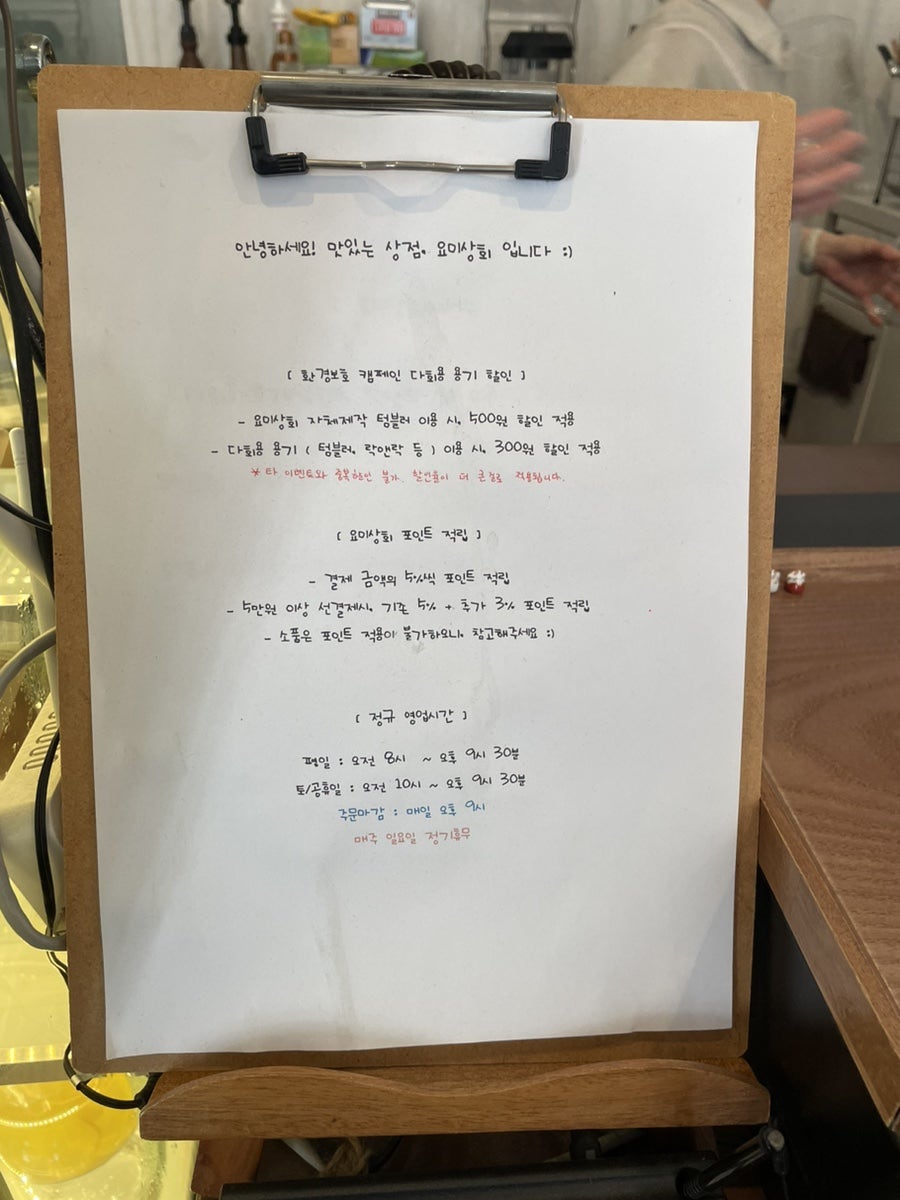 안녕하세요! 맛있는 상점, 요미상회 입니다 :)
[ 환경보호 캠페인 다회용 용기 할인 ]
- 요미상회 자체제작 텀블러 이용 시, 500원 할인 적용
- 다회용 용기 ( 텀블러, 락앤락 등 ) 이용 시, 300원 할인 적용
* 타 이벤트와 중복할인 불가, 할인율이 더 큰 걸로 적용됩니다.
[ 요미상회 포인트 적립 ]
- 결제 금액의 5%씩 포인트 적립
- 5만원 이상 선결제시, 기존 5% + 추가 3% 포인트 적립
- 소품은 포인트 적용이 불가하오니, 참고해주세요 :)
[ 정규 영업시간 ]
평일 : 오전 8시 ~ 오후 9시 30분
토/공휴일 : 오전 10시 ~ 오후 9시 30분
주문마감 : 매일 오후 9시
매주 일요일 정기휴무